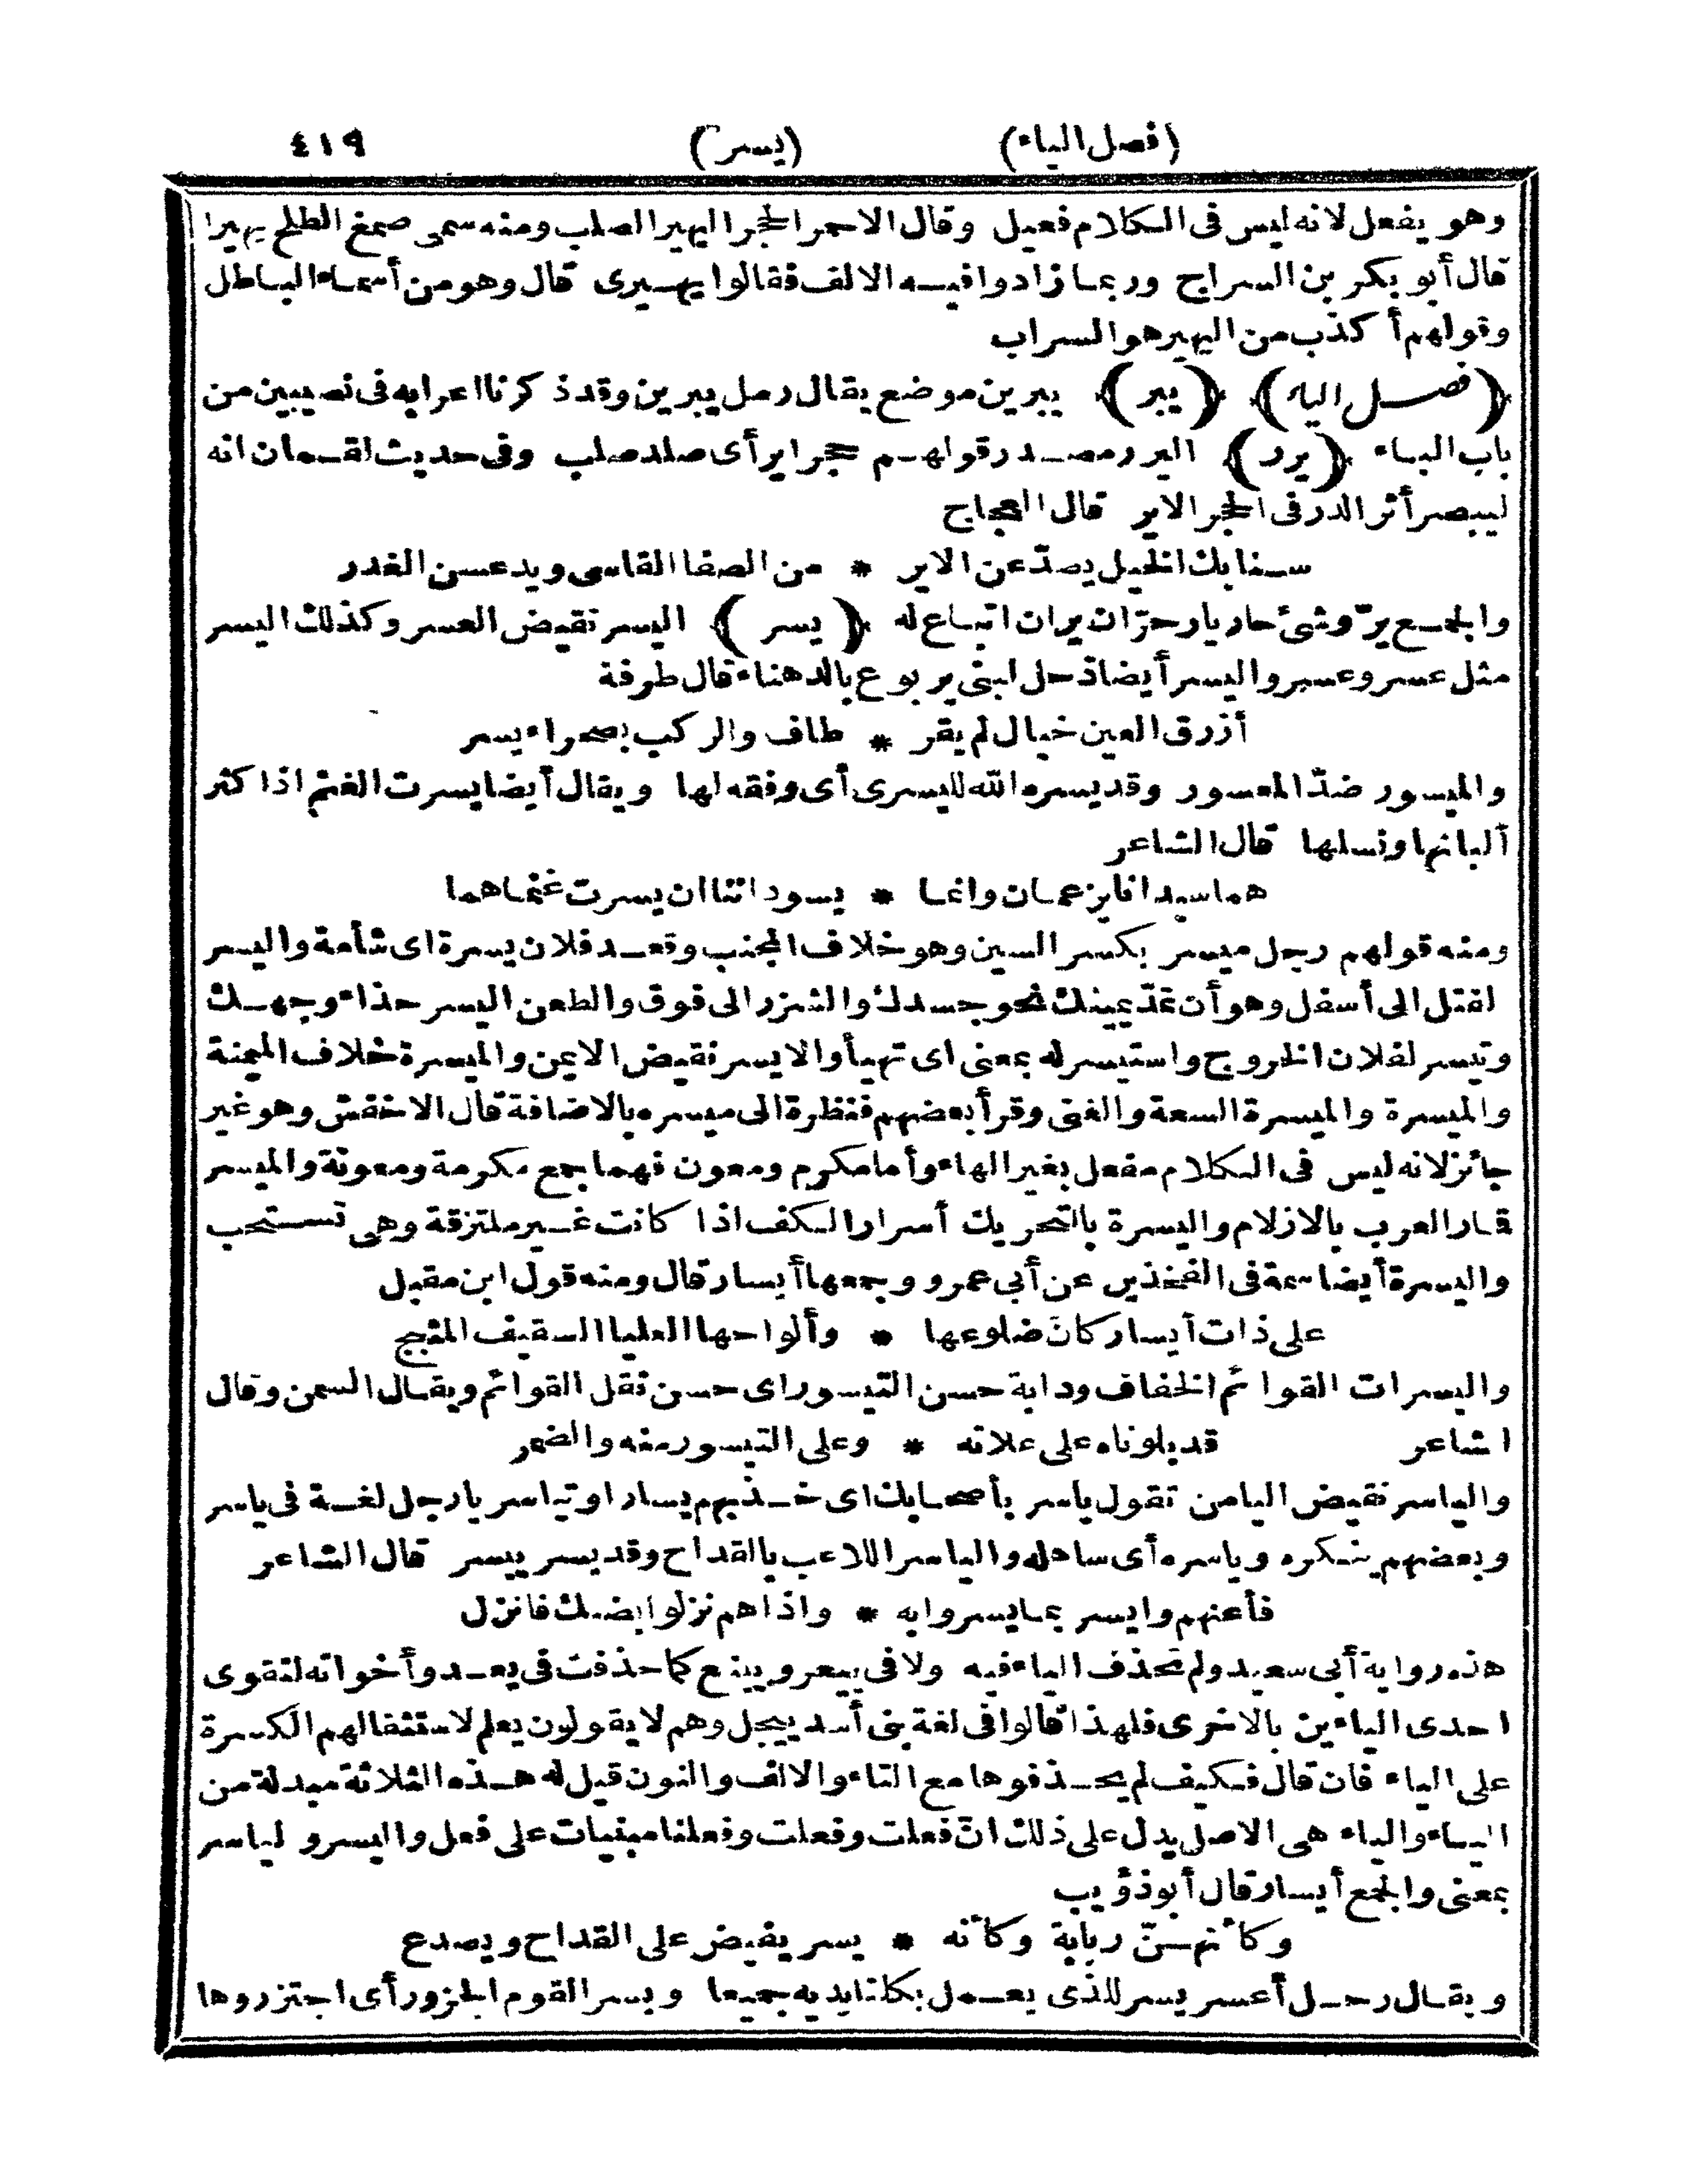 (فصل الياء) (يسر) ٤١٩
وهو يفعل لانه ليس فى الكلام فعيل وقال الاحمر الحجر اليهير الصلب ومنه سمى صمغ الطلح يهيرا
قال أبو بكر بن السراج وربما زادوا فيه الالف فقالوا يهيرى قال وهو من أسماء الباطل
وقولهم أكذب من اليهير هو السراب
﴿فصل الياء﴾ ﴿يبر﴾ يبرين موضع يقال رمل يبرين وقد ذكرنا اعرابه فى نصيبين من
باب الباء ﴿يرر﴾ اليرر مصدر قولهم حجر اير أى صلد صلب وفى حديث لقمان انه
ليبصر أثر الدر فى الحجر الاير قال العجاج
سنابك الخيل يصدّعن الاير * من الصفا القاسى ويدعسن الغدر
والجمع يرّ وشئ حار يار حرّان يران اتباع له ﴿يسر﴾ اليسر نقيض العسر وكذلك اليسر
مثل عسر وعسر واليسر أيضا دحل لبنى يربوع بالدهناء قال طرفة
أرق العين خيال لم يقر * طاف والركب بصحراء يسر
والميسور ضدّ المعسور وقد يسره الله لليسرى أى وفقه لها ويقال أيضا يسرت الغنم اذا كثر
ألبانها ونسلها قال الشاعر
هما سيدانا يزعمان وانما * يسوداننا ان يسرت غنماهما
ومنه قولهم رجل ميسر بكسر السين وهو خلاف المجنب وقعد فلان يسرة اى شأمة واليسر
لفتل الى أسفل وهو أن تمدّ يمينك نحو جسدك والشزر الى فوق والطعن اليسر حذاء وجهك
وتيسر لفلان الخروج واستيسر له بمعنى اى تهيأ والايسر نقيض الايمن والميسرة خلاف الميمنة
والميسرة والميسرة السعة والغنى وقرأ بعضهم فنظرة الى ميسره بالاضافة قال الاخفش وهو غير
جائز لانه ليس فى الكلام مفعل بغير الهاء وأما مكرم ومعون فهما جمع مكرمة ومعونة والميسر
قمار العرب بالازلام واليسرة بالتحريك أسرار الكف اذا كانت غير ملتزقة وهى تستحب
واليسرة أيضا سمة فى الفخذين عن أبى عمرو وجمعها أيسار قال ومنه قول ابن مقبل
على ذات أيسار كانّ ضلوعها * وألواحها العليا السقيف المشبح
واليسرات القوائم الخفاف ودابة حسن التيسور اى حسن نقل القوائم ويقال السمن وقال
اشاعر قد بلوناه على علاته * وعلى التيسور منه والضمر
والياسر نقيض اليامن تقول ياسر بأصحابك اى خذ بهم يسارا وتياسر يا رجل لغة فى ياسر
وبعضهم ينكره وياسره أى ساهله والياسر اللاعب بالقداح وقد يسر ييسر قال الشاعر
فأعنهم وايسر بما يسروا به * واذا هم نزلوا بضنك فانزل
هذه رواية أبى سعيد ولم تحذف الياء فيه ولا فى ييعر ويينع كما حذفت فى يعد وأخواته لتقوى
احدى الياءين بالاخرى فلهذا قالوا فى لغة بنى أسد ييجل وهم لا يقولون يعلم لاستثقالهم الكسرة
على الياء فان قال فكيف لم يحذفوها مع التاء والالف والنون قيل له هذه الثلاثة مبدلة من
الياء والياء هى الاصل يدل على ذلك انّ فعلت وفعلت وفعلنا مبنيات على فعل واليسر و لياسر
بمعنى والجمع أيسار قال أبو ذؤيب
وكأنهنّ ربابة وكأنه * يسر يفيض على القداح ويصدع
ويقال رجل أعسر يسر للذى يعمل بكلتا يديه جميعا ويسر القوم الجزور أى اجتزروها